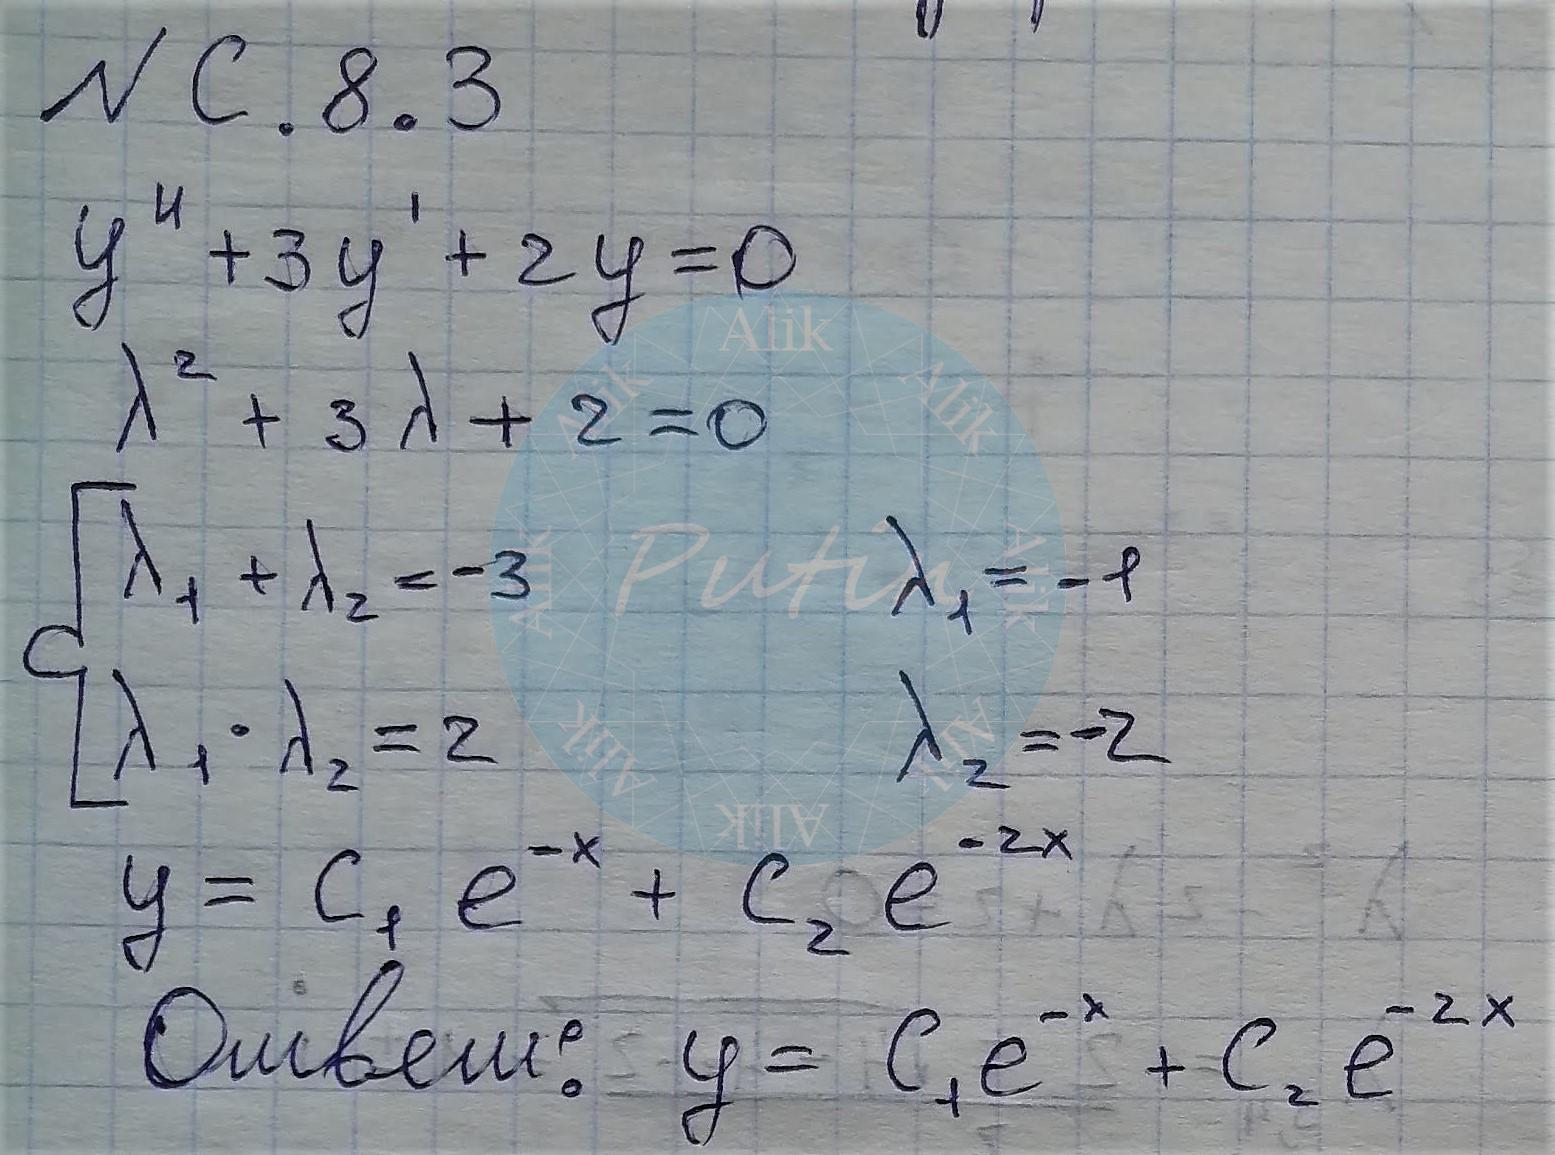 № С.8.3
y'' + 3y' + 2y = 0
λ² + 3λ + 2 = 0
λ₁ + λ₂ = -3 λ₁ = -1
λ₁ · λ₂ = 2 λ₂ = -2
y = C₁ e^{-x} + C₂ e^{-2x}
Ответ: y = C₁ e^{-x} + C₂ e^{-2x}
Alik
Alik
Alik
Alik
Alik
Alik
Alik
Alik
Putin